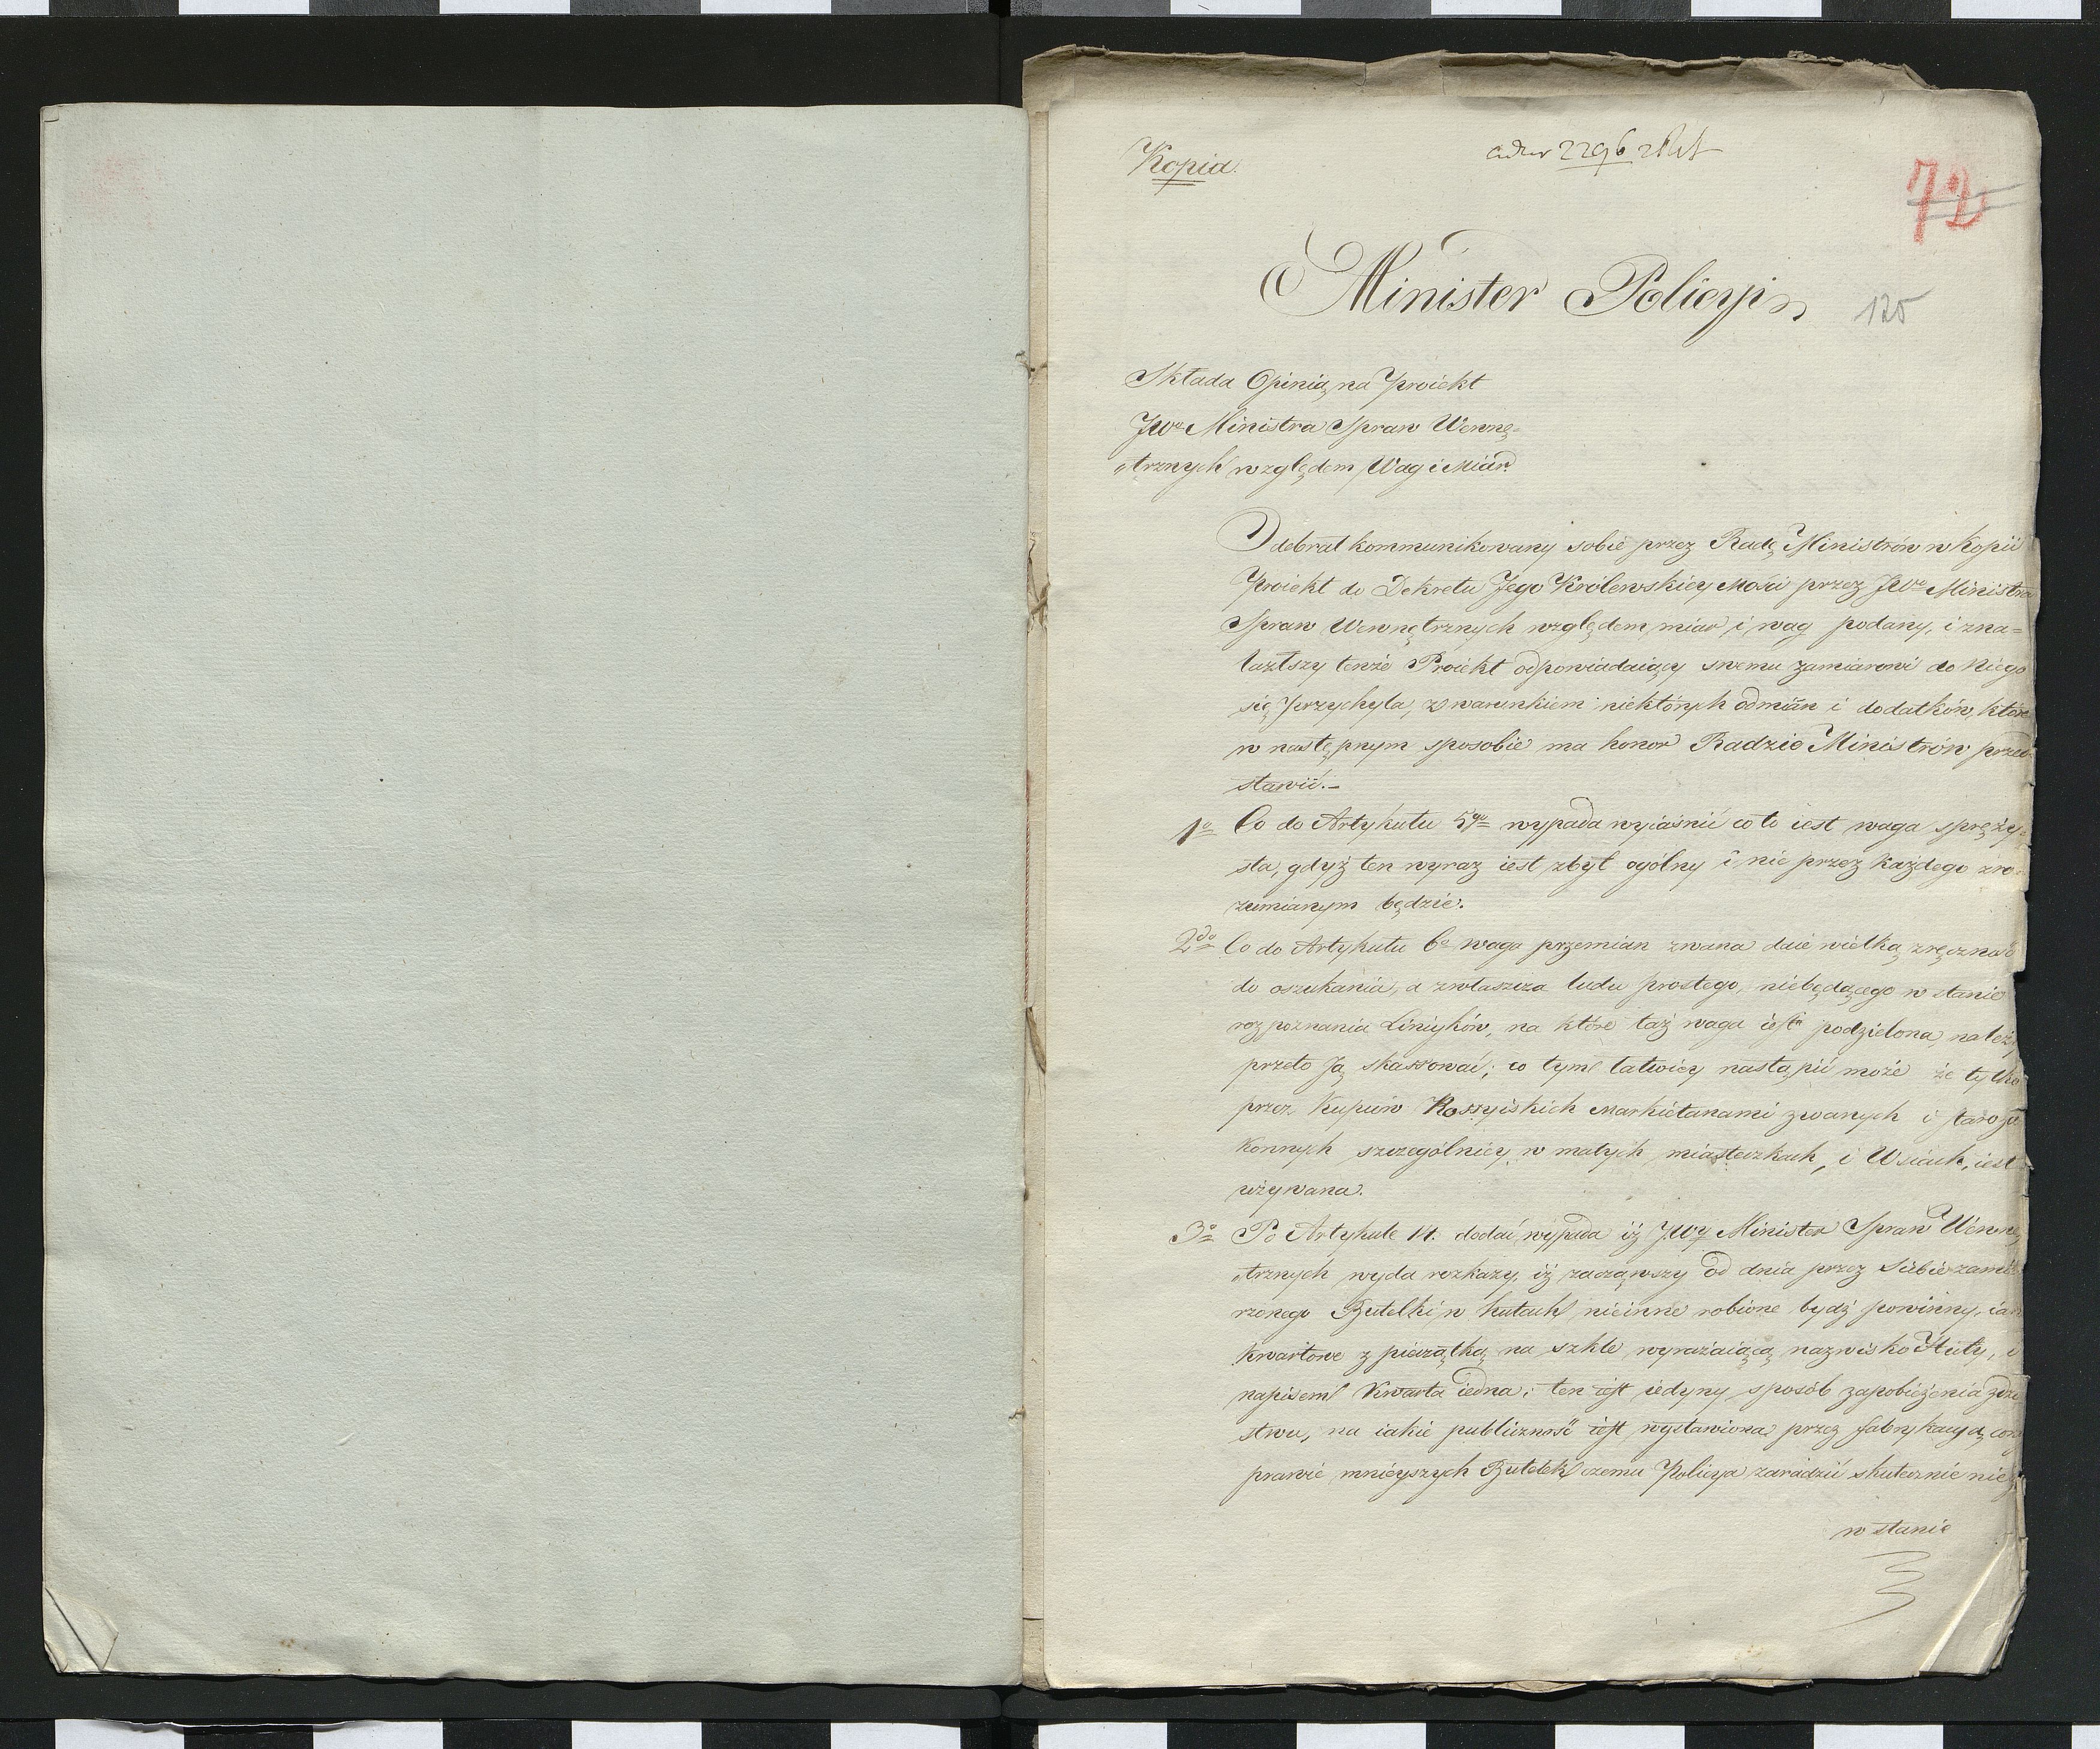 Kopia.
ad nr 2296
72
Minister Policyi
125
Składa Opinią na Proiekt
JWo Ministra Spraw Wewnę=
„trznych względem Wag i Miar.
Odebrał kommunikowany sobie przez Radę Ministrów w Kopii
Proiekt do Dekretu Jego Królewskiey Mości przez JWo Ministra
Spraw Wewnętrznych względem miar i wag podany, i zna=
lazłszy tenże Proiekt odpowiadaiący swemu zamiarowi do niego
się przychyla, z warunkiem niektórych odmian i dodatków, które
w następnym sposobie ma honor Radzie Ministrów przed
stawić.–
1o Co do Artykułu 5go wypada wyiaśnić co to iest waga spręży=
sta, gdyż ten wyraz iest zbyt ogólny i nie przez każdego zro=
zumianym będzie.
2do Co do Artykułu 6o waga przemian zwana daie wielką zręczność
do oszukania, a zwłaszcza ludu prostego, niebędącego w stanie
rozpoznania Liniyków, na które taż waga iest podzielona, należy
przeto Ją skassować; co tym łatwiey nastąpić może że tylko
przez Kupców Rossyiskich Markietanami zwanych i staroza
konnych szczególniey w małych miasteczkach, i Wsiach, iest
używana.
3o Po Artykule 14. dodać wypada iż JWy Minister Spraw Wewnę
„trznych wyda rozkazy, iż zacząwszy od dnia przez Siebie zamie
rzonego Butelki w hutach nieinne robione bydź powinny, iak
kwartowe z pieczątką na szkle wyrażaiącą nazwisko Huty, i
napisem Kwarta iedna; ten iest iedyny sposób zapobieżenia zdzie
stwu, na iakie publiczność iest wystawiona przez fabrykacyą coraz
prawie mnieyszych Butelek czemu Policya zaradzić skutecznie nie
w stanie